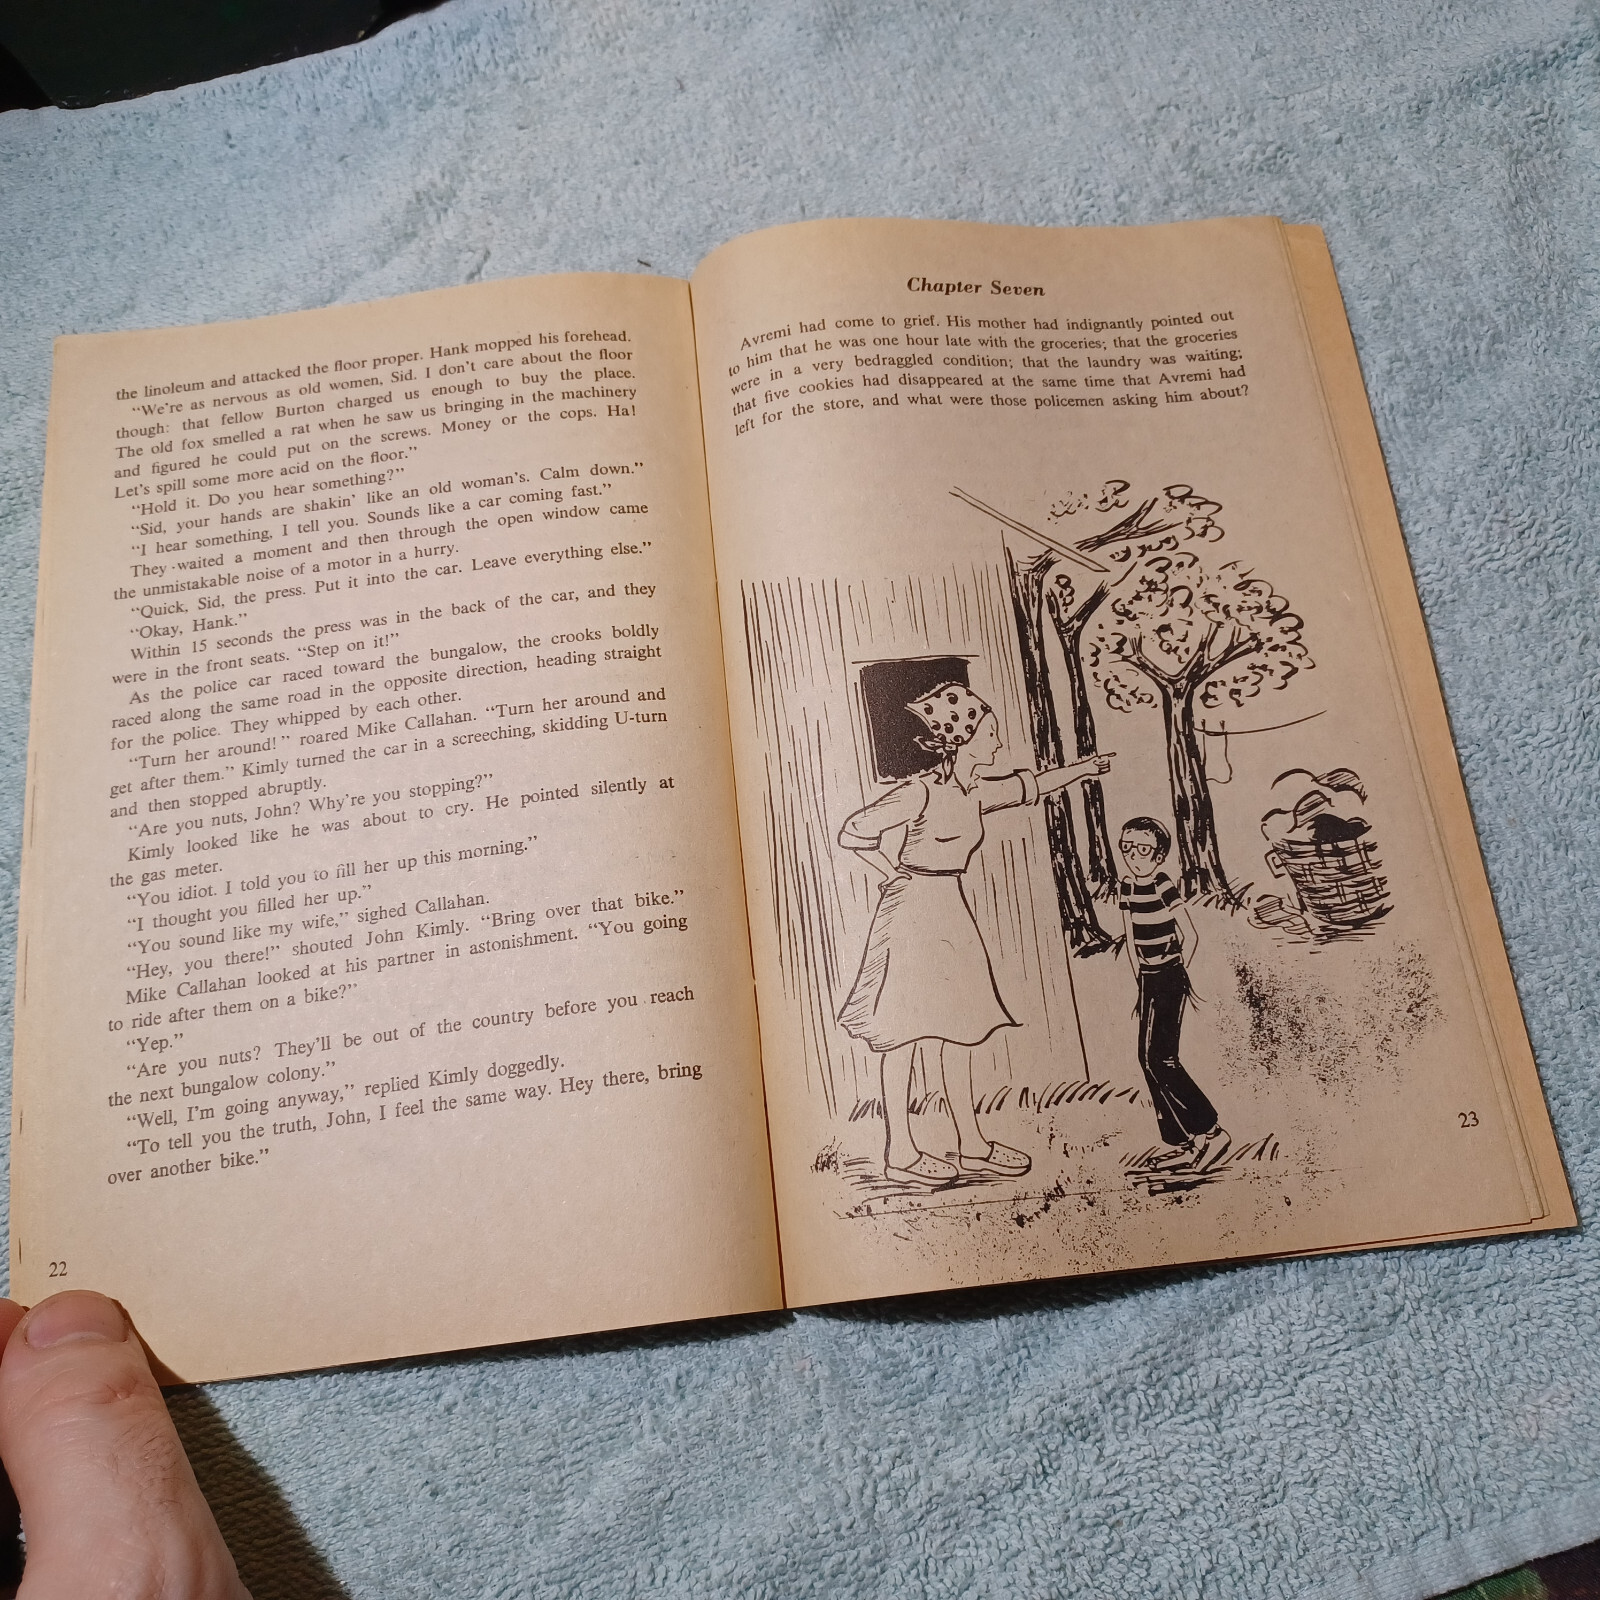 the linoleum and attacked the floor proper. Hank mopped his forehead.
“We’re as nervous as old women, Sid. I don’t care about the floor
though: that fellow Burton charged us enough to buy the place.
The old fox smelled a rat when he saw us bringing in the machinery
and figured he could put on the screws. Money or the cops. Ha!
Let’s spill some more acid on the floor.”
“Hold it. Do you hear something?”
“Sid, your hands are shakin’ like an old woman’s. Calm down.”
“I hear something, I tell you. Sounds like a car coming fast.”
They waited a moment and then through the open window came
the unmistakable noise of a motor in a hurry.
“Quick, Sid, the press. Put it into the car. Leave everything else.”
“Okay, Hank.”
Within 15 seconds the press was in the back of the car, and they
were in the front seats. “Step on it!”
As the police car raced toward the bungalow, the crooks boldly
raced along the same road in the opposite direction, heading straight
for the police. They whipped by each other.
“Turn her around!” roared Mike Callahan. “Turn her around and
get after them.” Kimly turned the car in a screeching, skidding U-turn
and then stopped abruptly.
“Are you nuts, John? Why’re you stopping?”
Kimly looked like he was about to cry. He pointed silently at
the gas meter.
“You idiot. I told you to fill her up this morning.”
“I thought you filled her up.”
“You sound like my wife,” sighed Callahan.
“Hey, you there!” shouted John Kimly. “Bring over that bike.”
Mike Callahan looked at his partner in astonishment. “You going
to ride after them on a bike?”
“Yep.”
“Are you nuts? They’ll be out of the country before you reach
the next bungalow colony.”
“Well, I’m going anyway,” replied Kimly doggedly.
“To tell you the truth, John, I feel the same way. Hey there, bring
over another bike.”
22
Chapter Seven
Avremi had come to grief. His mother had indignantly pointed out
to him that he was one hour late with the groceries; that the groceries
were in a very bedraggled condition; that the laundry was waiting;
that five cookies had disappeared at the same time that Avremi had
left for the store, and what were those policemen asking him about?
23